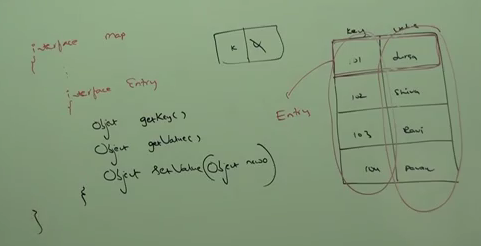 interface map
{
interface Entry
{
Object getKey()
Object getValue()
Object setValue(Object newo)
}
}
K
Key Value
101 durga
102 Shiva
103 Ravi
104 Pavan
Entry